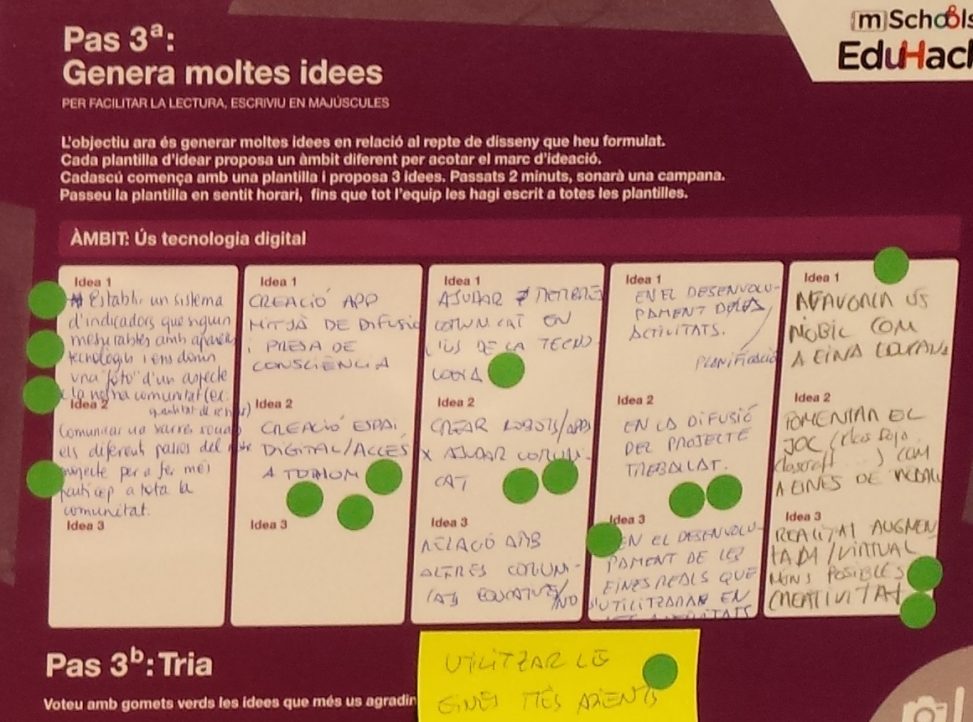 Pas 3ª:
Genera moltes idees
PER FACILITAR LA LECTURA, ESCRIVIU EN MAJÚSCULES
mSchools
EduHack
L'objectiu ara és generar moltes idees en relació al repte de disseny que heu formulat.
Cada plantilla d'idear proposa un àmbit diferent per acotar el marc d'ideació.
Cadascú comença amb una plantilla i proposa 3 idees. Passats 2 minuts, sonarà una campana.
Passeu la plantilla en sentit horari, fins que tot l'equip les hagi escrit a totes les plantilles.
ÀMBIT: Ús tecnologia digital
Idea 1
Establir un sistema
d'indicadors que siguin
mesurables amb
tecnologia i ens donin
una "foto" d'un aspecte
la nostra comunitat (ex.
Idea 2
Comunicar via xarxes
els diferent passos del
projecte per a fer més
partícep a tota la
comunitat.
Idea 3
Idea 1
CREACIÓ APP
MITJÀ DE DIFUSIÓ
I PRESA DE
CONSCIÈNCIA
Idea 2
CREACIÓ ESPAI
DIGITAL/ACCÉS
A TOTHOM
Idea 3
Idea 1
AJUDAR MEMBRES
COMUNITAT EN
L'ÚS DE LA TECNO
LOGIA
Idea 2
CREAR ROBOTS/APPS
X AJUDAR COMUNI
TAT
Idea 3
RELACIÓ AMB
ALTRES COMUNI-
TATS EDUCATIVES/NO
Idea 1
EN EL DESENVOLU-
PAMENT DE LES
ACTIVITATS.
PLANIFICACIÓ
Idea 2
EN LA DIFUSIÓ
DEL PROJECTE
TREBALLAT.
Idea 3
EN EL DESENVOLU-
PAMENT DE LES
EINES REALS QUE
S'UTILITZARAN EN
LES ACTIVITATS
Idea 1
AFAVORIR ÚS
MÒBIL COM
A EINA
Idea 2
FOMENTAR EL
JOC (class dojo
classcraft...) COM
A EINES DE
Idea 3
REALITAT AUGMEN
TADA/VIRTUAL
MONS POSSIBLES
CREATIVITAT
Pas 3ᵇ: Tria
Voteu amb gomets verds les idees que més us agradin
UTILITZAR LE
EINES MÉS ADIENTS